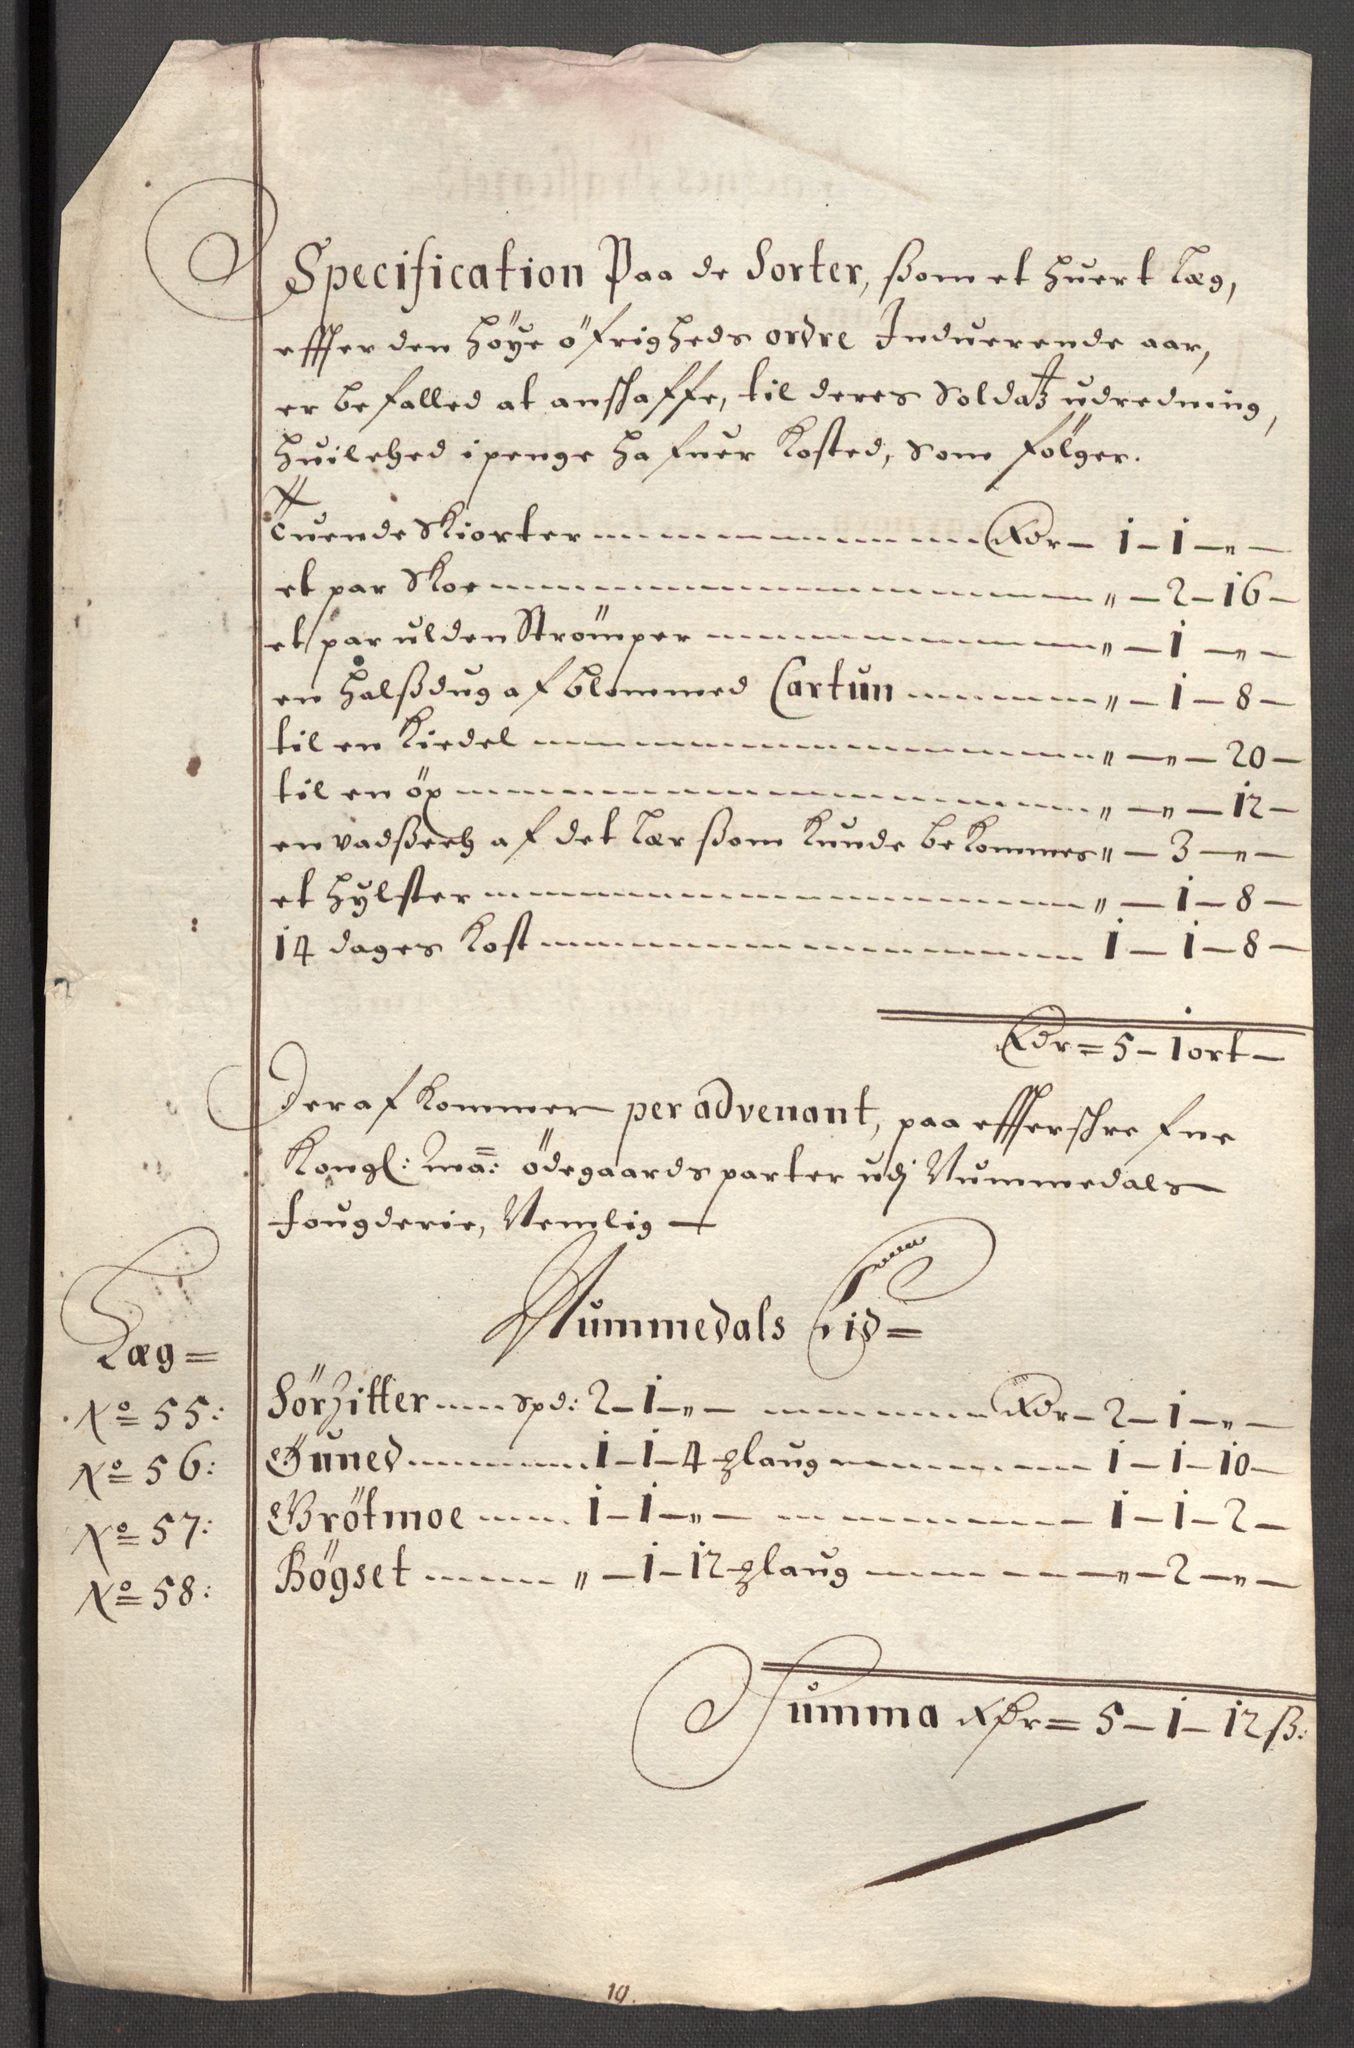 Specification Paa de Sorter, ßom et huert Læg,
effter den høÿe øfrigheds ordre Induerende aar,
er befalled at anschaffe, til deres Soldatz udredning,
huilched i penge hafuer Kosted, Som følger.
Tuende Skiorter Rdr – 1 – 1 – „ –
et par Skoe „ – 2 – 16 –
et par ulden Strømper „ – 1 – „ –
en halßdug af blommed Cartun „ – 1 – 8 –
til en Kiedel „ – „ – 20 –
til en øx „ – „ – 12 –
en vadßech af det Lær ßom Kunde beKommes „ – 3 – „ –
et hÿlster „ – 1 – 8 –
14 dages Kost 1 – 1 – 8 –
Rdr = 5 – 1 ort –
Deraf Kommer per advenant, paa effterschrefne
Kongl: Ma: ødegaards parter udj Nummedals
fougderie, Nemlig –
Nummedals
Læg =
No 55: Sørzitter Spd: 2 – 1 – „ – Rdr – 2 – 1 – „ –
No 56: Guned 1 – 1 – 4 ℔laug 1 – 1 – 10 –
No 57: Brøtmoe 1 – 1 – „ – 1 – 1 – 2 –
No 58: Bøgset „ – 1 – 12 ℔laug „ – 2 – „ –
Summa Rdr = 5 – 1 – 12 ß:
19.